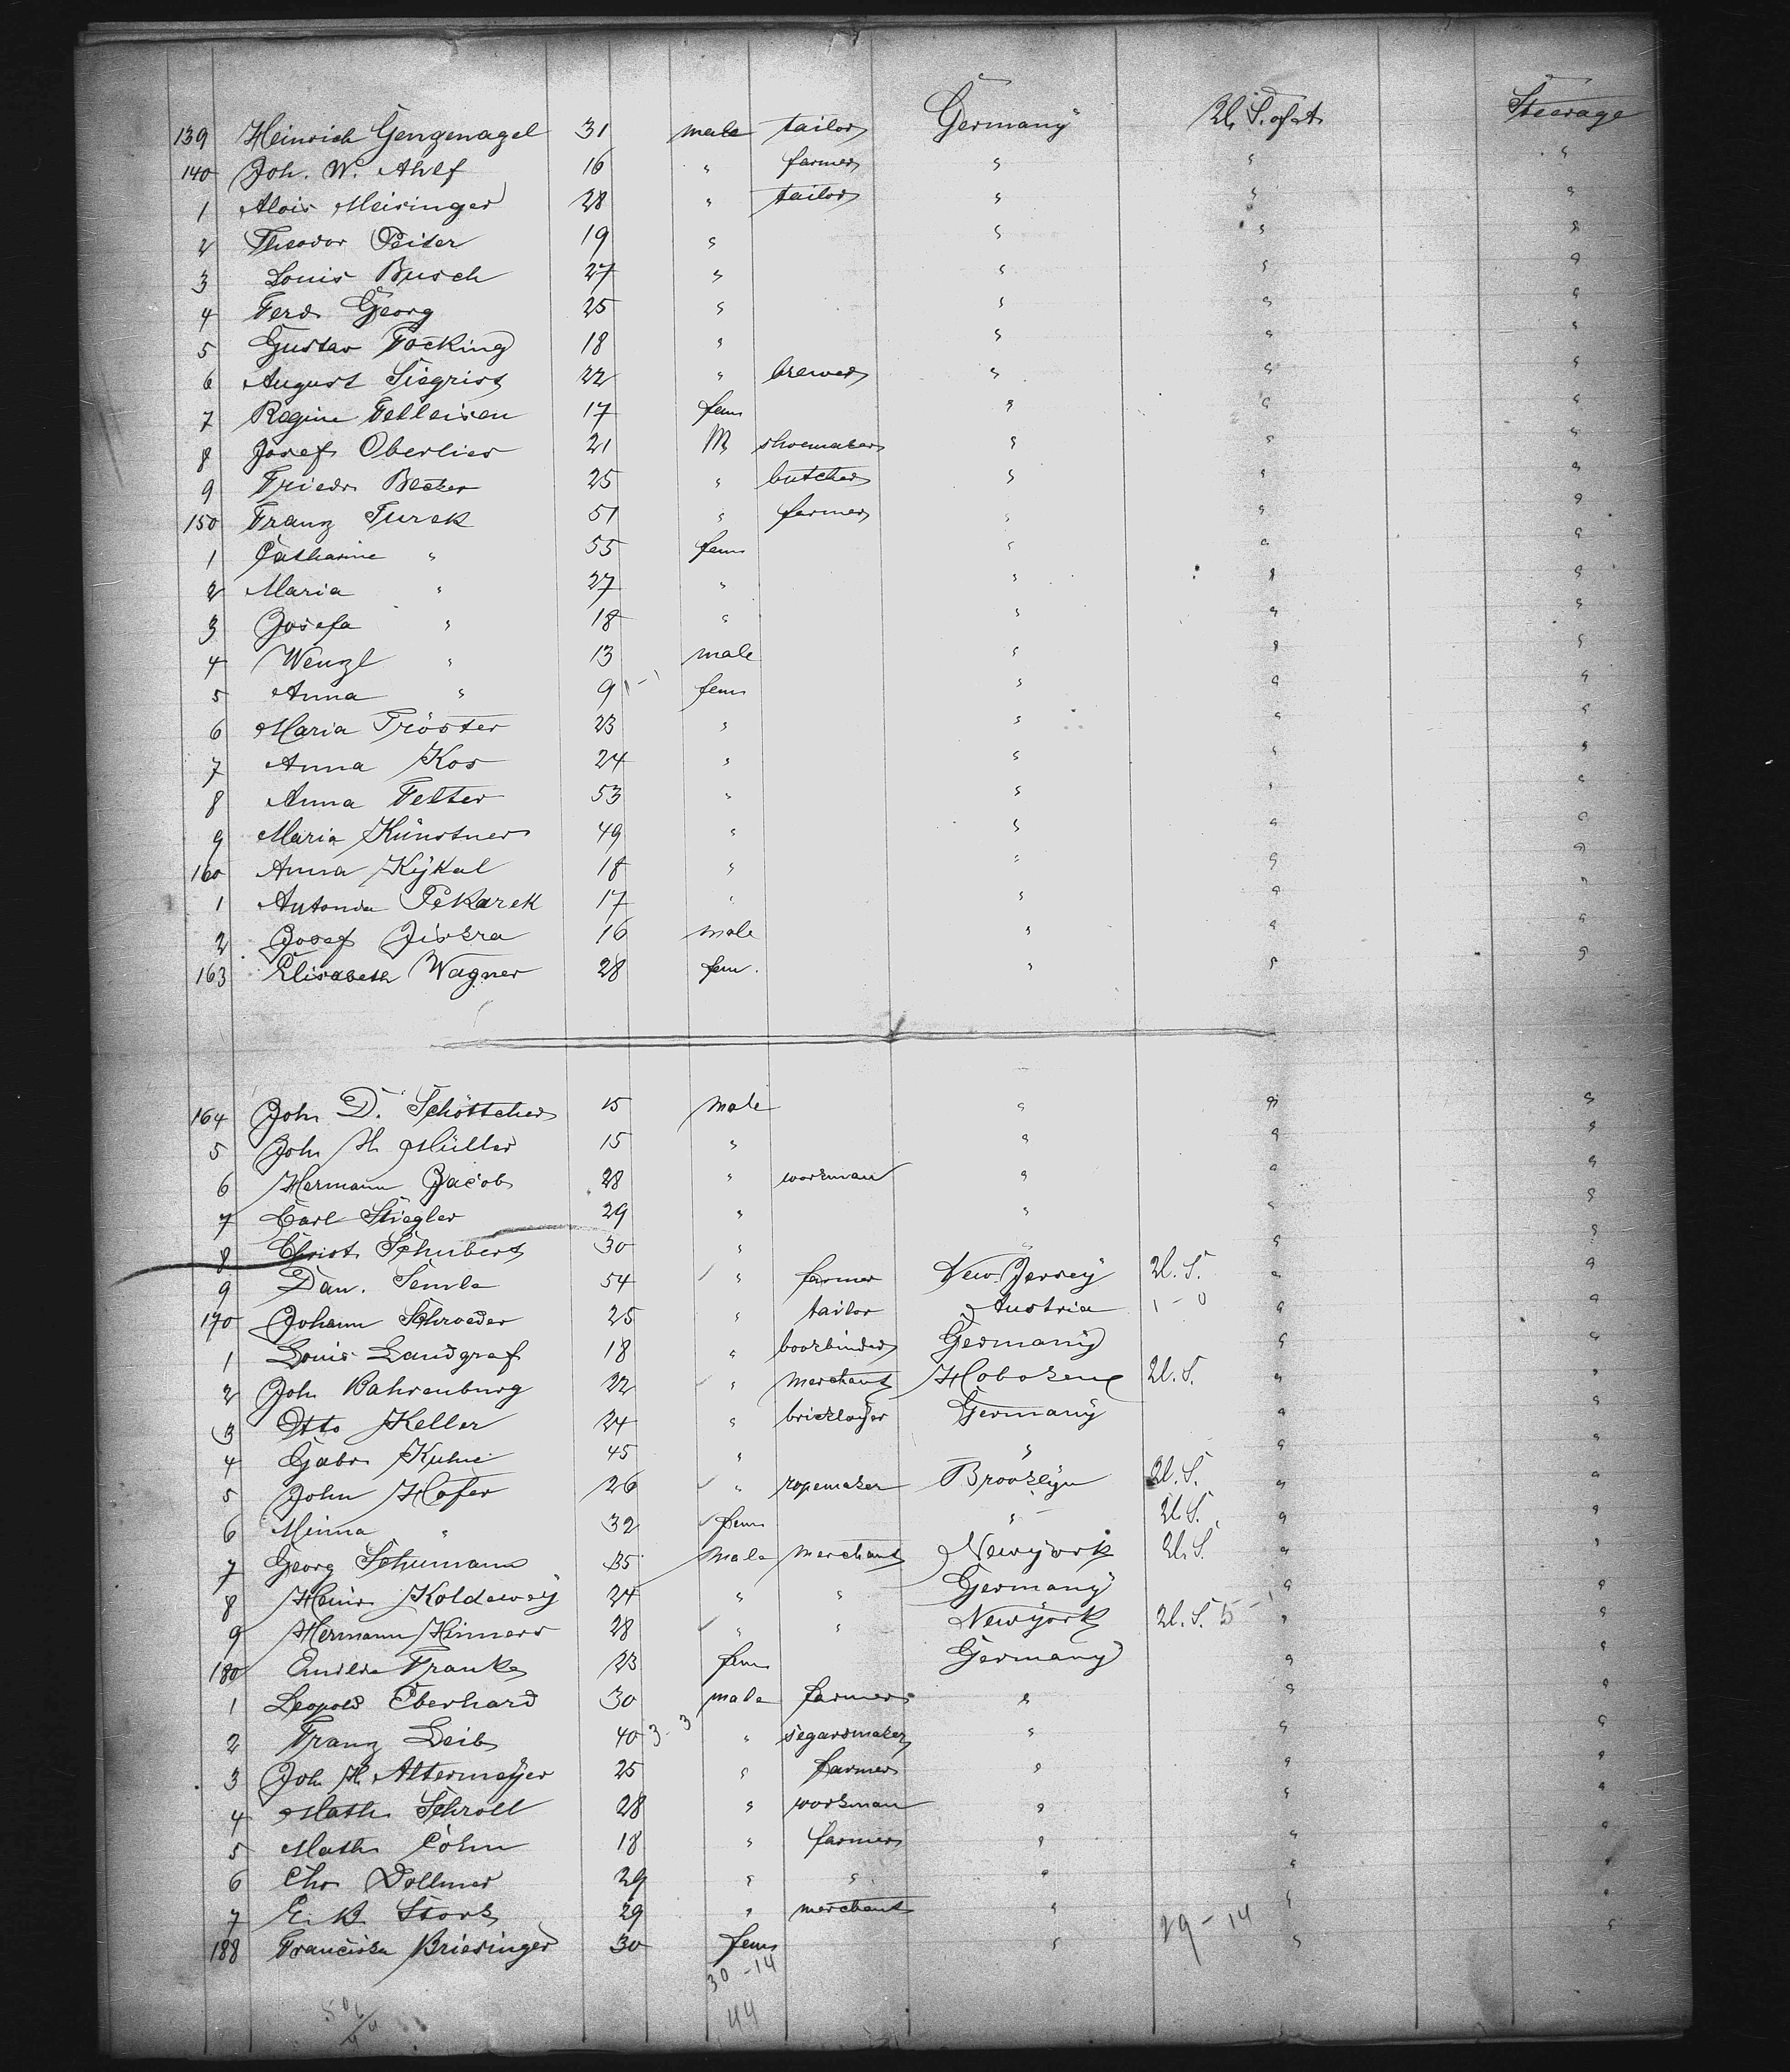 139 Heinrich Gengenagel 31 male tailor Germany U. S. of A. Steerage
140 Joh. W. Ahlf 16 " farmer " " "
1 Alois Meisinger 28 " tailor " " "
2 Theodor Peiter 19 " " " "
3 Louis Busch 27 " " " "
4 Ferd. Georg 25 " " " "
5 Gustav Focking 18 " " " "
6 August Siegrist 22 " brewer " " "
7 Regine Felleisen 17 fem " " "
8 Josef Oberlier 21 M shoemaker " " "
9 Friedr. Becker 25 " butcher " " "
150 Franz Turek 51 " farmer " " "
1 Catharine " 55 fem " " "
2 Maria " 27 " " " "
3 Josefa " 18 " " " "
4 Wenzl " 13 male " " "
5 Anna " 9 fem " " "
6 Maria Tröster 23 " " " "
7 Anna Kos 24 " " " "
8 Anna Fetter 53 " " " "
9 Maria Künstner 49 " " " "
160 Anna Kÿkal 18 " " " "
1 Antonia Pekarek 17 " " " "
2 Josef Jiskra 16 male " " "
163 Elisabeth Wagner 28 fem. " " "
164 John D. Schöttcher 15 male " " "
5 Joh. H. Müller 15 " " " "
6 Hermann Jacob 28 " workman " " "
7 Carl Stiegler 29 " " " "
8 Christ. Schubert 30 " " " "
9 Dan. Semle 54 " farmer New Jersey U. S. " "
170 Johann Schroeder 25 " tailor Austria 1 - 0 " "
1 Louis Landgraf 18 " bookbinder Germany " "
2 Joh. Bahrenburg 22 " merchant Hoboken U. S. " "
3 Otto Keller 24 " bricklayer Germany " "
4 Gabr. Kuhne 45 " " " "
5 John Hofer 26 " ropemaker Brooklyn U. S. " "
6 Minna " 32 fem " U. S. " "
7 Georg Schumann 35 male merchant Newyork U. S. " "
8 Heinr. Koldewey 24 " " Germany " "
9 Hermann Hinners 28 " " Newyork U. S. 5 - 1 " "
180 Emilie Franke 23 fem Germany " "
1 Leopold Eberhard 30 male farmer " " "
2 Franz Leib 40 3 - 3 " segarsmaker " " "
3 Joh. H. Altermeyer 25 " farmer " " "
4 Math. Schroll 28 " workman " " "
5 Math. Cohn 18 " farmer " " "
6 Chr. Dollmer 29 " " " " "
7 E. B. Stork 29 " merchant " " "
188 Franciska Briesinger 30 fem " 29 - 14 " "
30 - 14
44